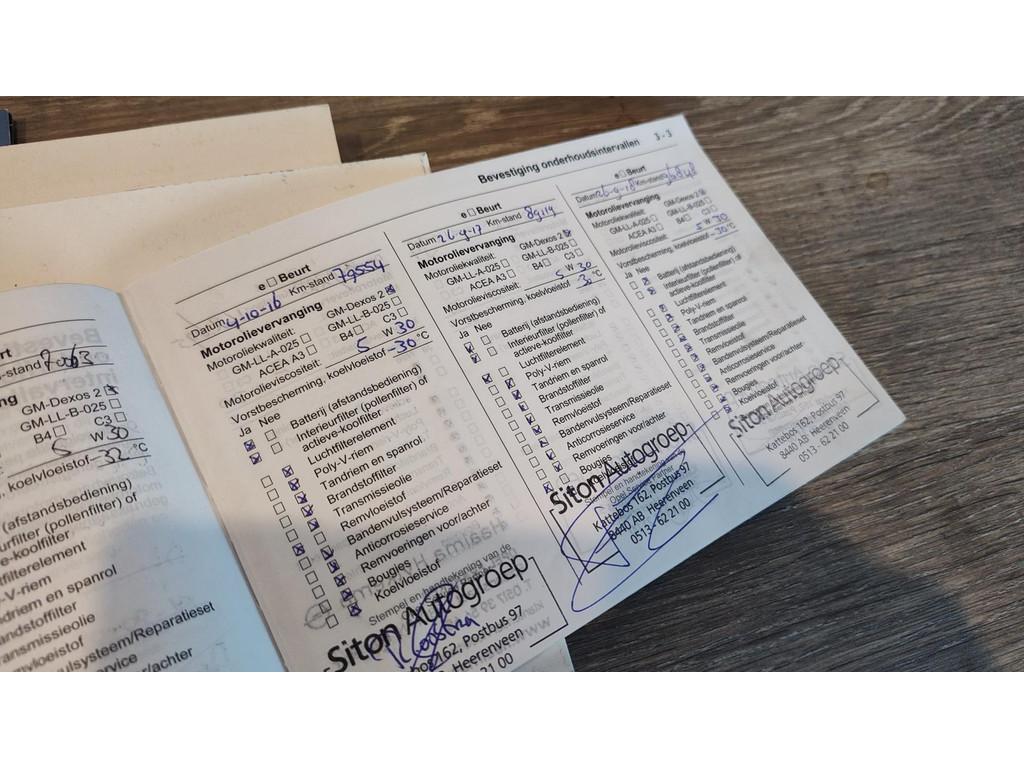 Bevestiging onderhoudsintervallen 3 - 3
rt
m-stand
ng
GM-Dexos 2
GM-LL-B-025
B4 C3
5 W 30
, koelvloeistof -32 °C
(afstandsbediening)
eurfilter (pollenfilter) of
e-koolfilter
tfilterelement
V-riem
ndriem en spanrol
andstoffilter
ansmissieolie
mvloeistof
nvulsysteem/Reparatieset
service
en voor/achter
e Beurt
Datum 4-10-16 Km-stand 79554
Motorolievervanging
Motoroliekwaliteit: GM-Dexos 2
GM-LL-A-025 GM-LL-B-025
ACEA A3 B4 C3
Motorolieviscositeit: 5 W 30
Vorstbescherming, koelvloeistof -30 °C
Ja Nee
Batterij (afstandsbediening)
Interieurfilter (pollenfilter) of
actieve-koolfilter
Luchtfilterelement
Poly-V-riem
Tandriem en spanrol
Brandstoffilter
Transmissieolie
Remvloeistof
Bandenvulsysteem/Reparatieset
Anticorrosieservice
Remvoeringen voor/achter
Bougies
Koelvloeistof
Stempel en handtekening van de
Siton Autogroep
bos 162, Postbus 97
Heerenveen
21 00
e Beurt
Datum 26-9-17 Km-stand 89114
Motorolievervanging
Motoroliekwaliteit: GM-Dexos 2
GM-LL-A-025 GM-LL-B-025
ACEA A3 B4 C3
Motorolieviscositeit: 5 W 30
Vorstbescherming, koelvloeistof 30 °C
Ja Nee
Batterij (afstandsbediening)
Interieurfilter (pollenfilter) of
actieve-koolfilter
Luchtfilterelement
Poly-V-riem
Tandriem en spanrol
Brandstoffilter
Transmissieolie
Remvloeistof
Bandenvulsysteem/Reparatieset
Anticorrosieservice
Remvoeringen voor/achter
Bougies
Siton Autogroep
Stempel en handtekening
Opel Service Partner
Kattebos 162, Postbus 97
8440 AB Heerenveen
0513 - 62 21 00
e Beurt
Datum 26-9-18 Km-stand 96848
Motorolievervanging
Motoroliekwaliteit: GM-Dexos 2
GM-LL-A-025 GM-LL-B-025
ACEA A3 B4 C3
Motorolieviscositeit: 5 W 30
Vorstbescherming, koelvloeistof -30 °C
Ja Nee
Batterij (afstandsbediening)
Interieurfilter (pollenfilter) of
actieve-koolfilter
Luchtfilterelement
Poly-V-riem
Tandriem en spanrol
Brandstoffilter
Transmissieolie
Remvloeistof
Bandenvulsysteem/Reparatieset
Anticorrosieservice
Remvoeringen voor/achter
Bougies
Koelvloeistof
Siton Autogroep
Kattebos 162, Postbus 97
8440 AB Heerenveen
0513 - 62 21 00